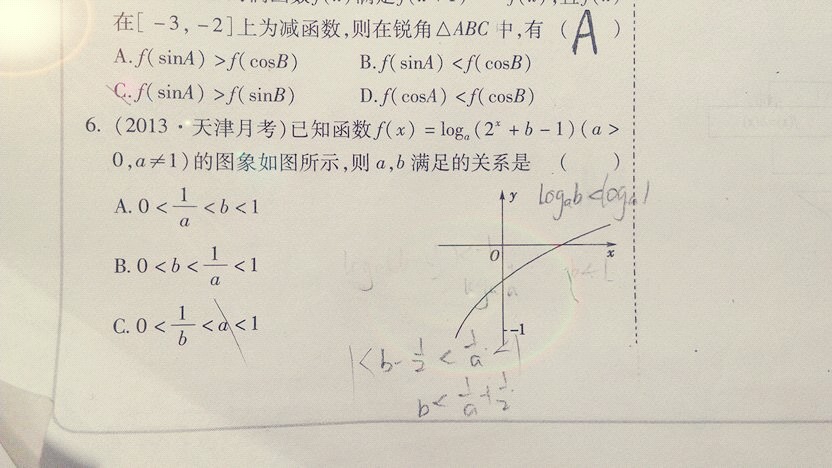 在[-3,-2]上为减函数,则在锐角△ABC中,有 ( A )
A.f(sinA)>f(cosB) B.f(sinA)<f(cosB)
C.f(sinA)>f(sinB) D.f(cosA)<f(cosB)
6.(2013·天津月考)已知函数f(x)=logₐ(2ˣ+b-1)(a>
0,a≠1)的图象如图所示,则a,b满足的关系是 ( )
A.0<1/a<b<1
B.0<b<1/a<1
C.0<1/b<a<1
y
logₐb<logₐ1
O
x
b<1
-1
1<b-1/2<1/a<1
b<1/a+1/2